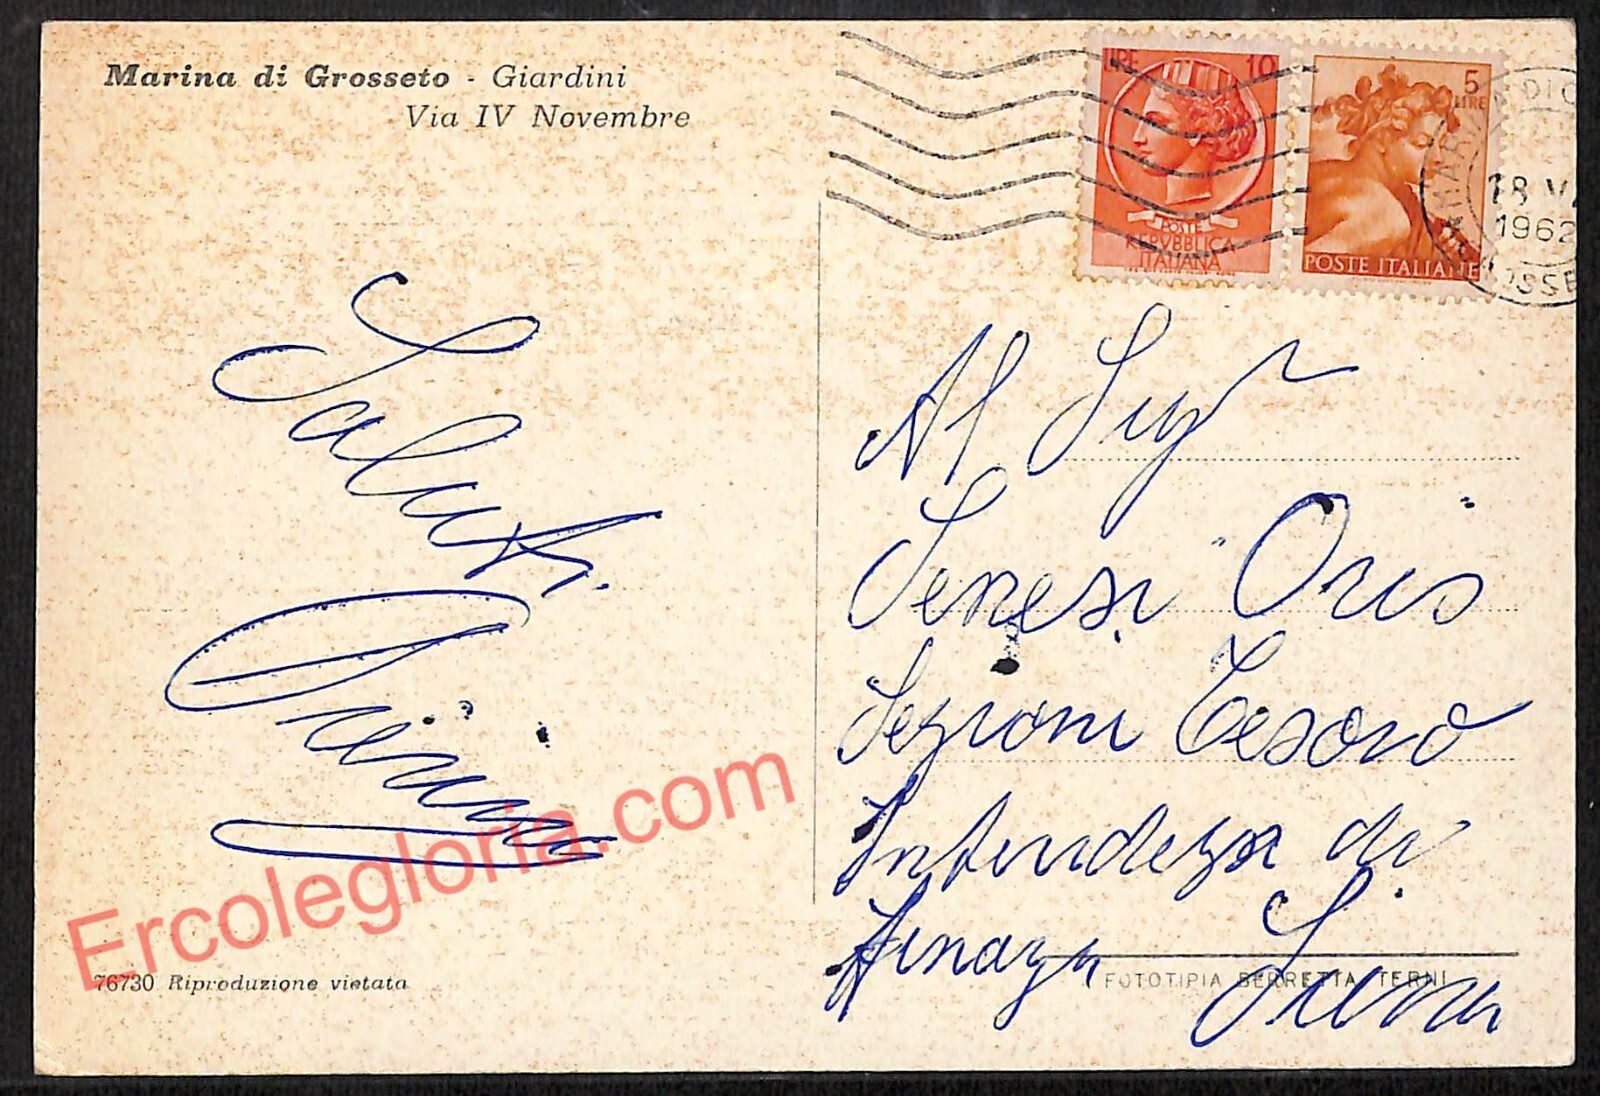 Marina di Grosseto - Giardini
Via IV Novembre
LIRE 10
POSTE
REPVBBLICA
ITALIANA
5
LIRE
POSTE ITALIANE
18 V
1962
Saluti
Al Sigr
Senesi Oris
Sezioni Tesoro
Intendeza di
Finaza Siena
Ercolegloria.com
76730 Riproduzione vietata
FOTOTIPIA BERRETTA TERNI